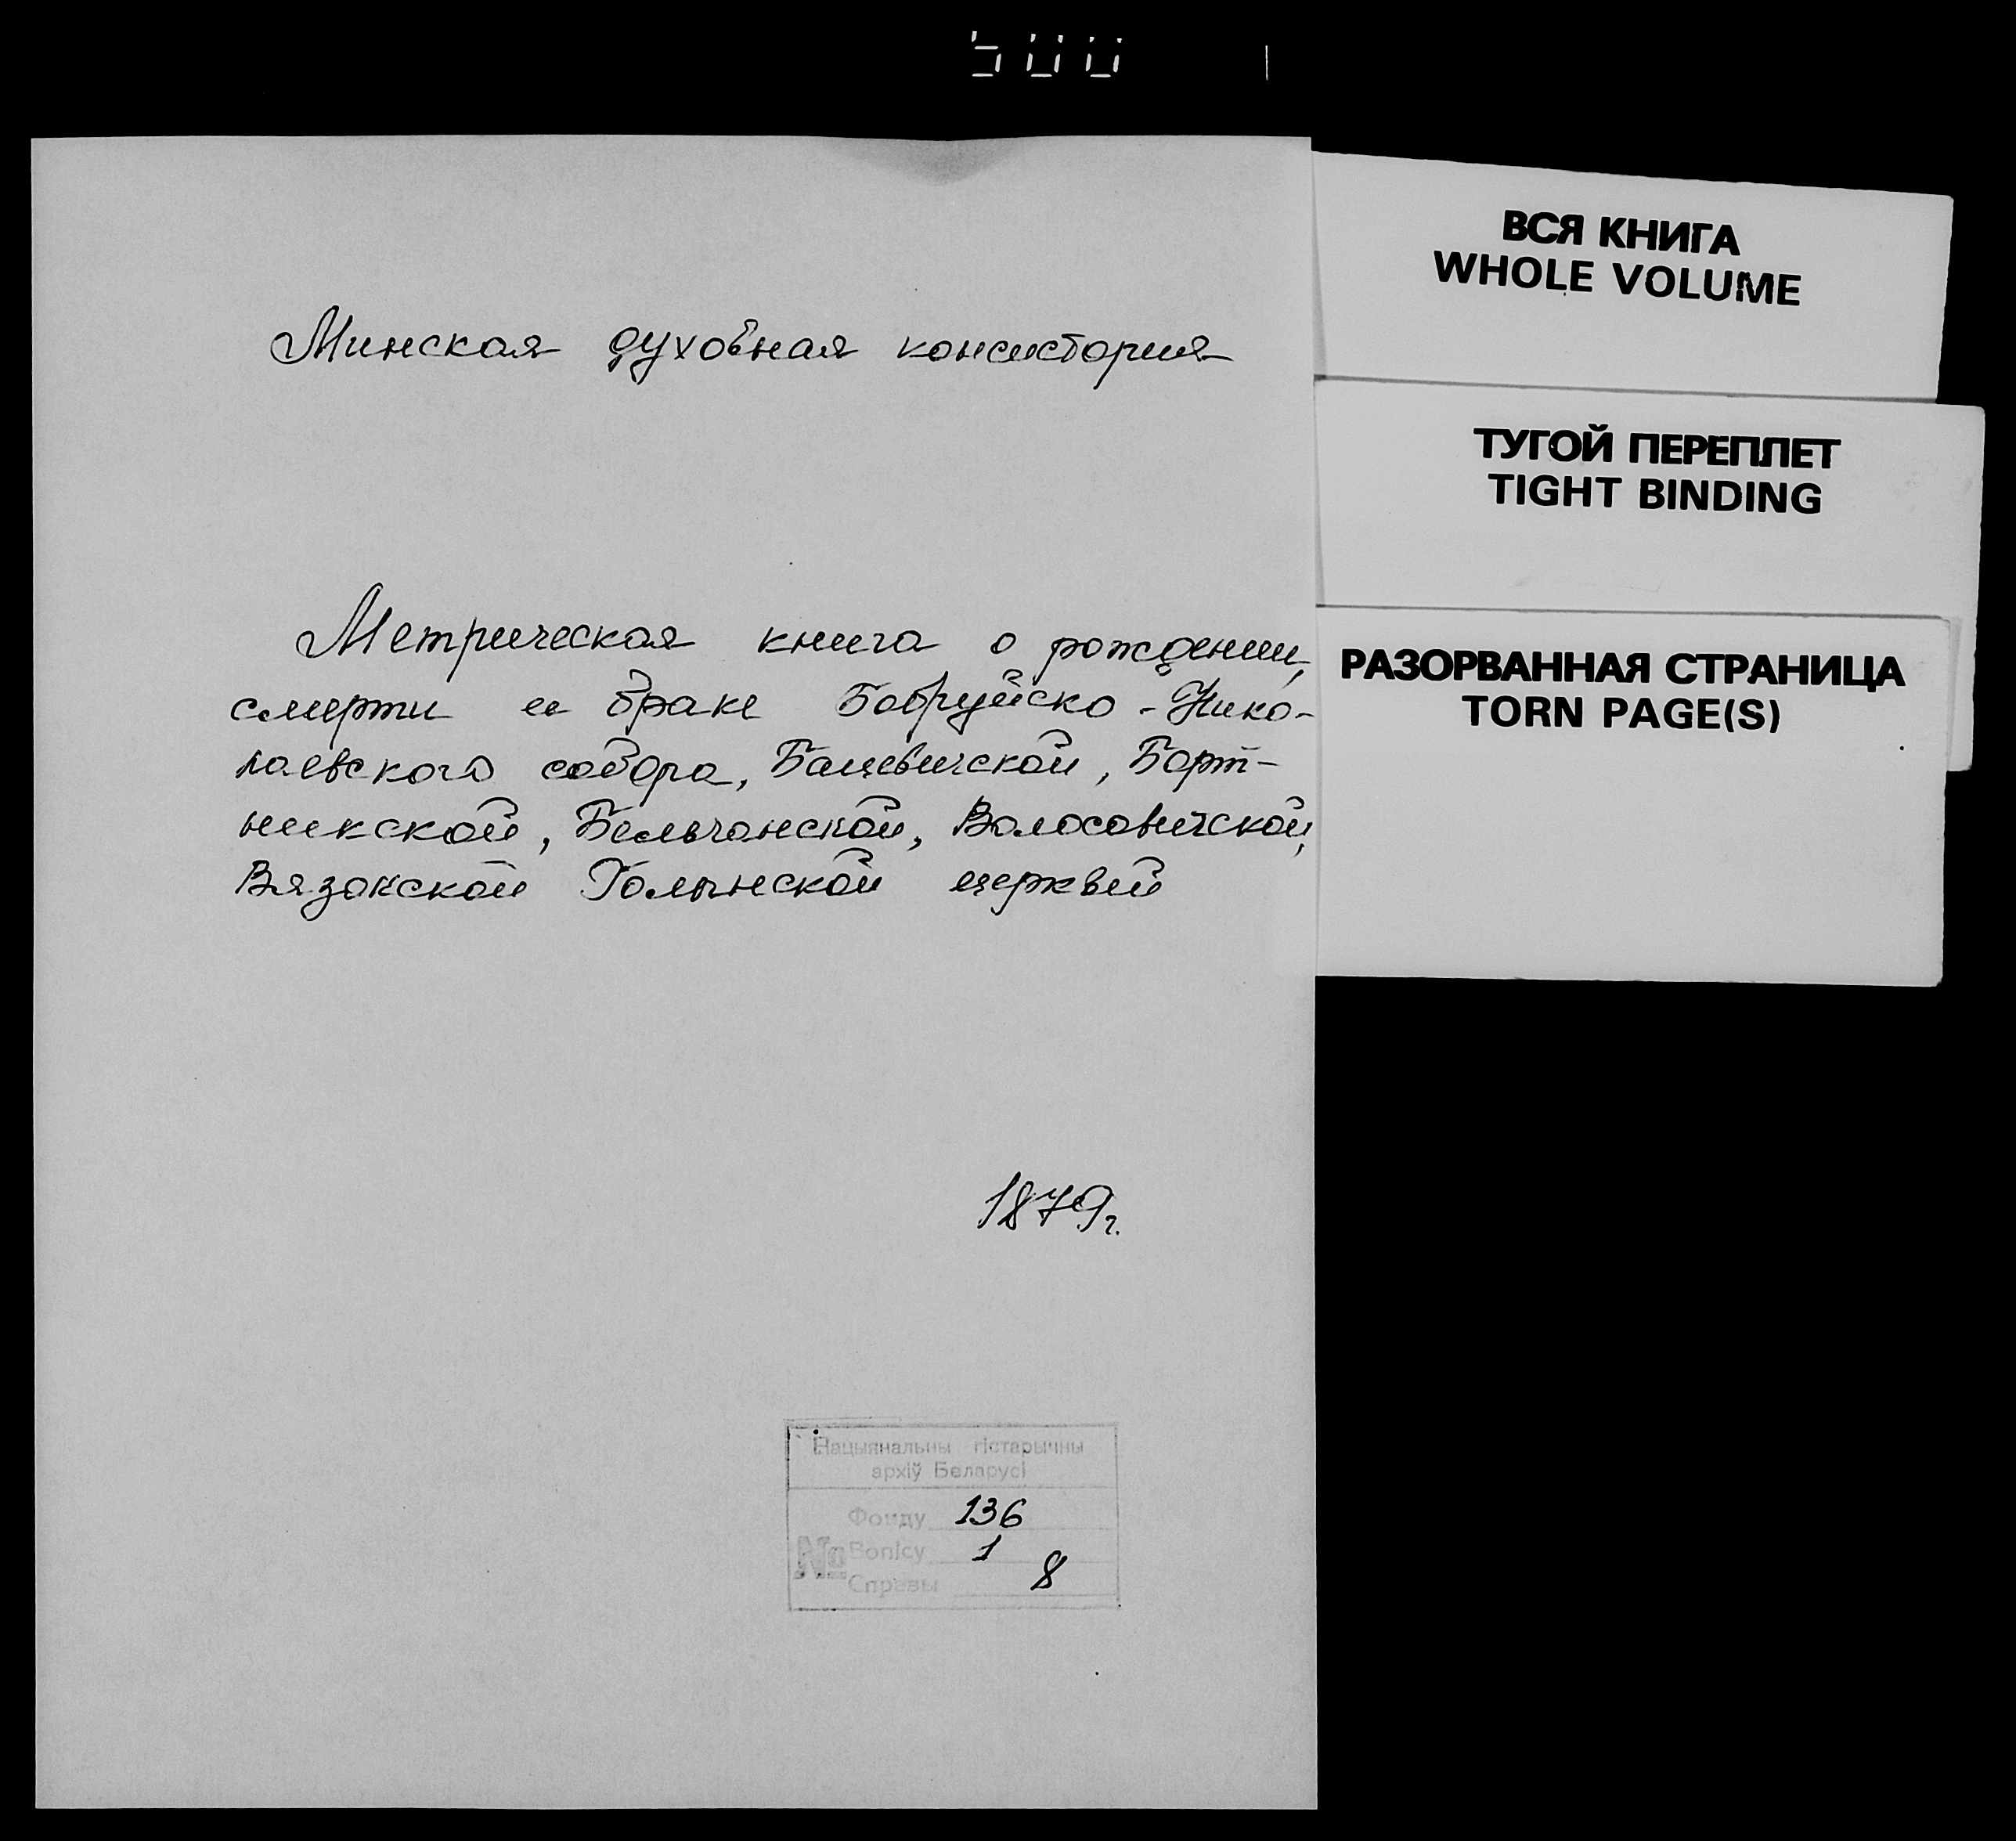 500
Минская духовная консистория
Метрическая книга о рождении,
смерти и браке Бобруйско-Нико-
лаевского собора, Бацевичской, Борт-
никской, Бельчанской, Волосовичской,
Вязокской Голынской церквей
1879г.
Нацыянальны гістарычны
архіў Беларусі
Фонду 136
№ Вопісу 1
Справы 8
ВСЯ КНИГА
WHOLE VOLUME
ТУГОЙ ПЕРЕПЛЕТ
TIGHT BINDING
РАЗОРВАННАЯ СТРАНИЦА
TORN PAGE(S)